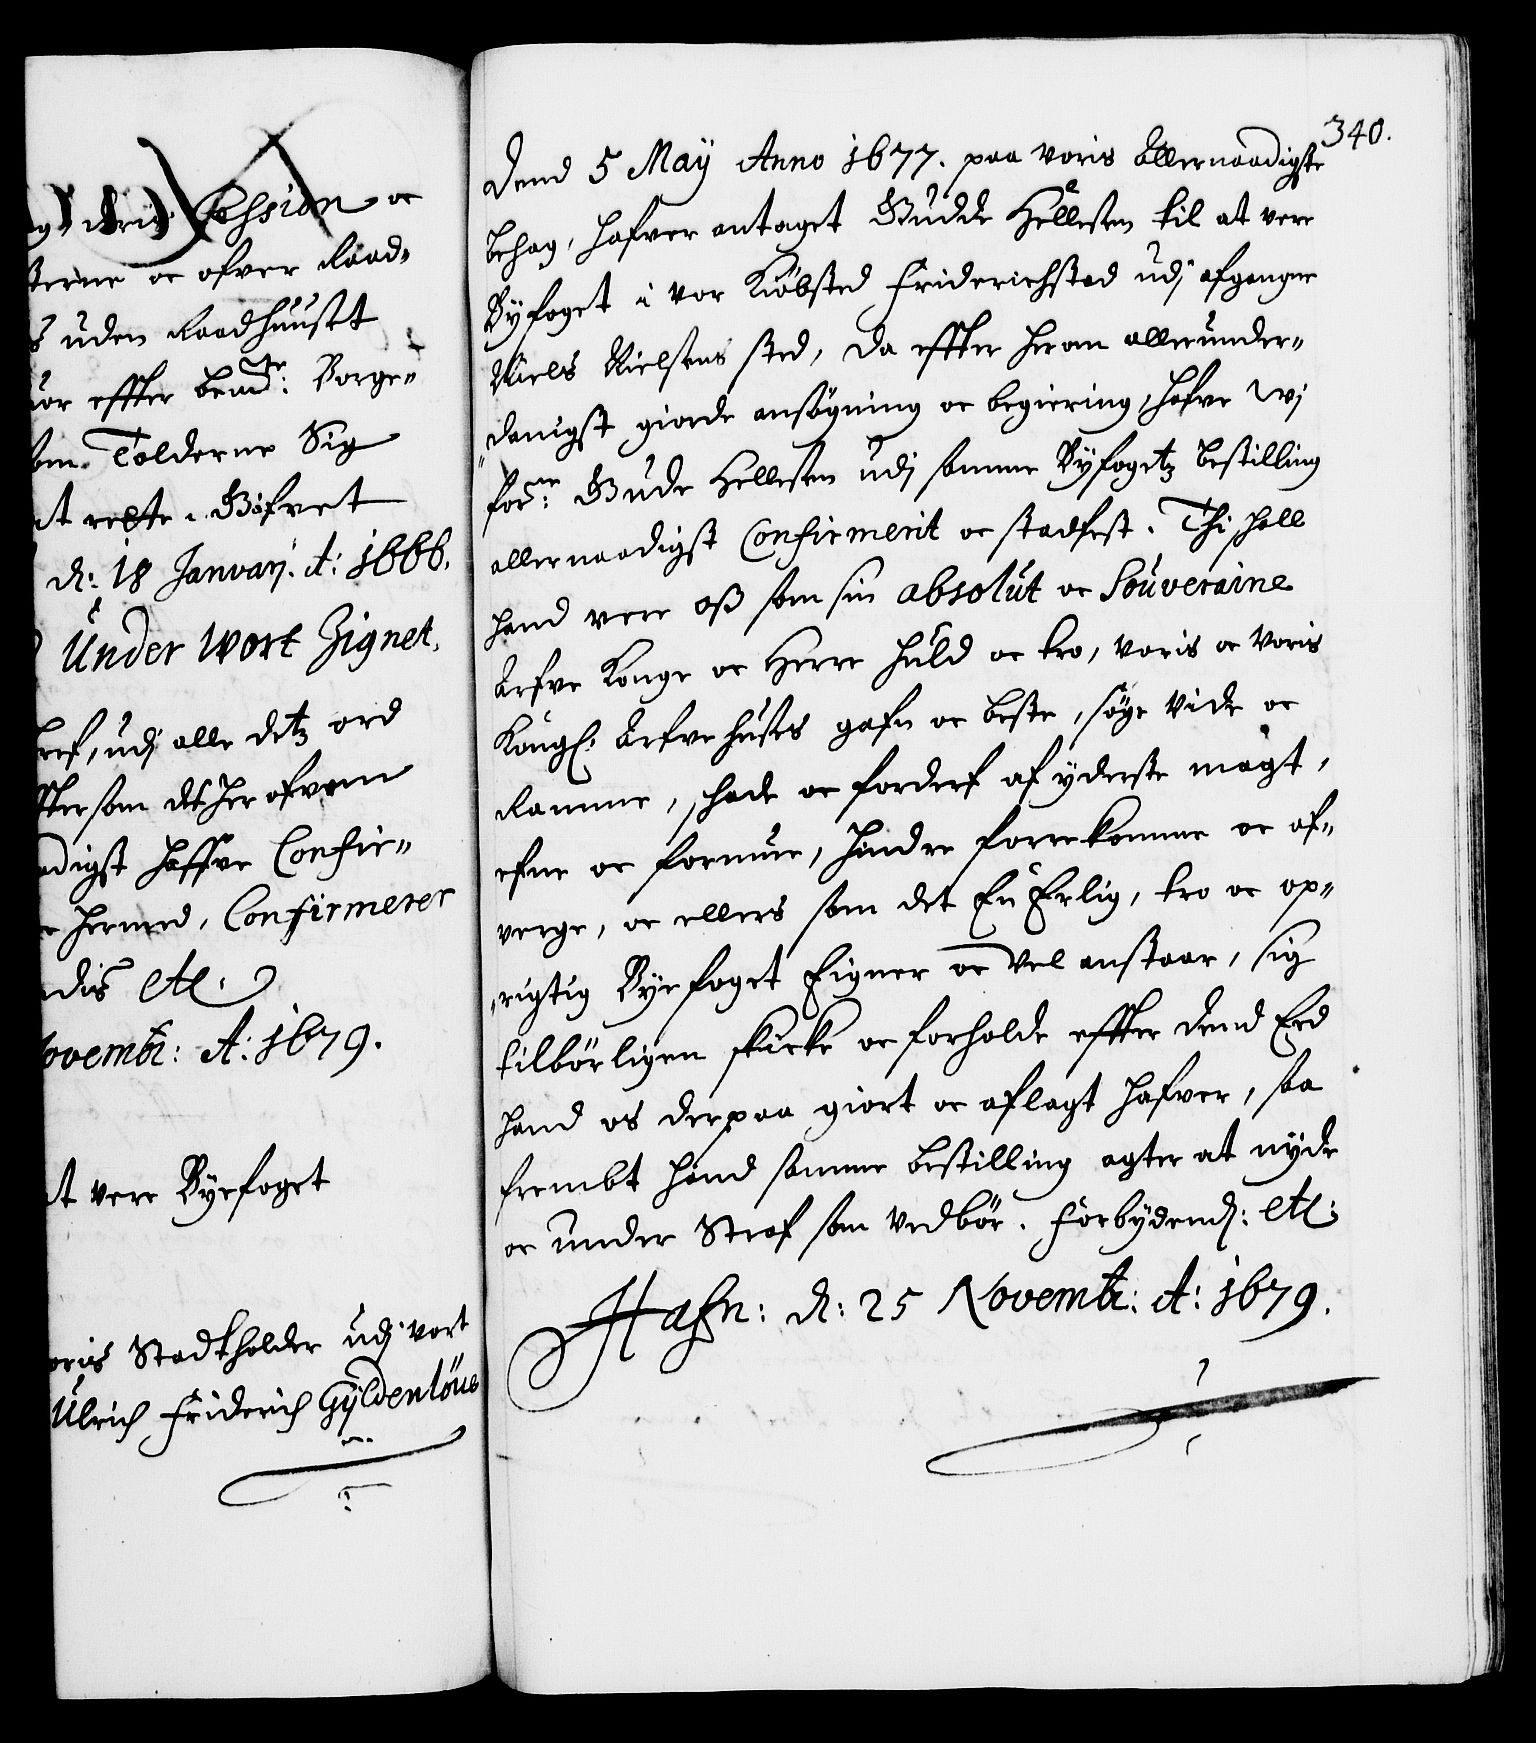 og deris Session oc
terne oc ofver Raad-
s uden Raadhuuset
uor effter bemte: Borge-
som Tolderne Sig
at rette. Gifvet
d: 18 Januarj. A: 1666.
Under Wort Zignet.
bref, udj alle detz ord
ffter som det her ofven
adigst haffve Confir-
e hermed, Confirmerer
ndis etc.
Novembr: A: 1679.
at vere Byefoget
voris Stadtholder udj vort
Ulrich Friderich Gyldenlöue
340.
Dend 5 Maÿ Anno 1677. paa voris Allernaadigste
behag, hafver antaget Gudde Hellesen til at vere
Byfoget i vor Kiöbsted Friderichstad udj afgangne
Niels Nielsens sted, da effter heram allerunder-
"danigst giorde ansögning oc begiering, hafve Wj
forne: Gude Hellesen udj samme Byfogetz bestilling
allernaadigst Confirmerit oc stadfest. Thi skall
hand vere oß som sin absolut oc Souveraine
Arfve Konge oc Herre huld oc tro, voris oc voris
Kongl: Arfvehuses gafn oc beste, söge vide oc
Ramme, skade oc forderf af yderste magt,
efne oc formue, hindre forrekomme oc af-
verge, oc ellers som det En Erlig, tro oc op-
"rigtig Byefoget Eigner oc vel anstaar, sig
tilbörligen skicke oc forholde effter dend Eed
hand os derpaa giort oc aflagt hafver, saa
frembt hand samme bestilling agter at nyde
oc under Straf som vedbör. Forbydend: etc:
Hafn: d: 25 Novembr: A: 1679.